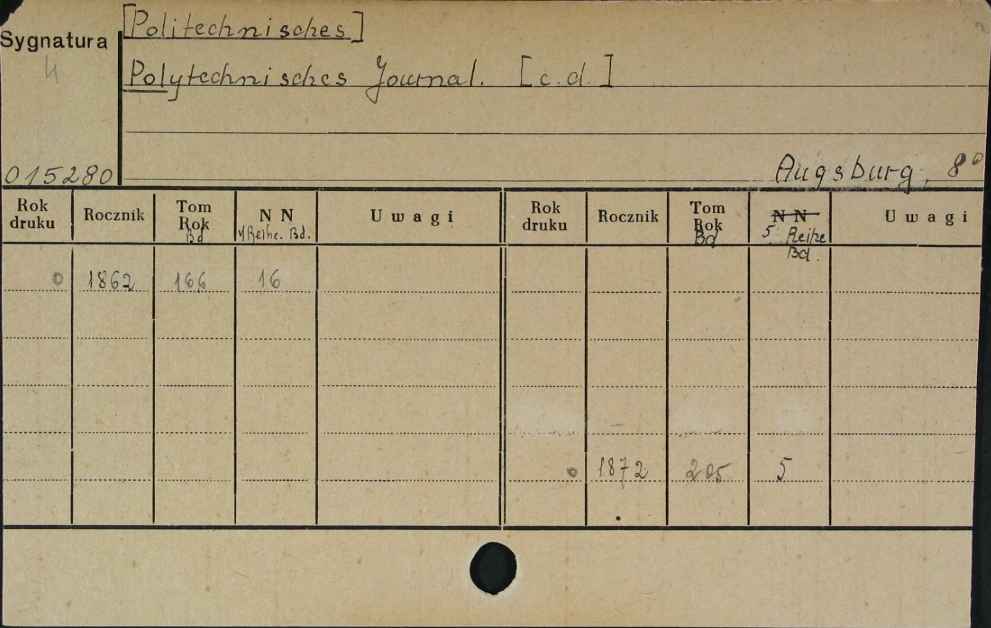 [Politechnisches]
Sygnatura
4
Polytechnisches Journal. [c.d.]
015280
Augsburg, 8°
Rok druku Rocznik Tom Rok Bd N N 4 Reihe. Bd. Uwagi Rok druku Rocznik Tom Rok Bd N N 5 Reihe Bd. Uwagi
o 1862 166 16
o 1872 205 5